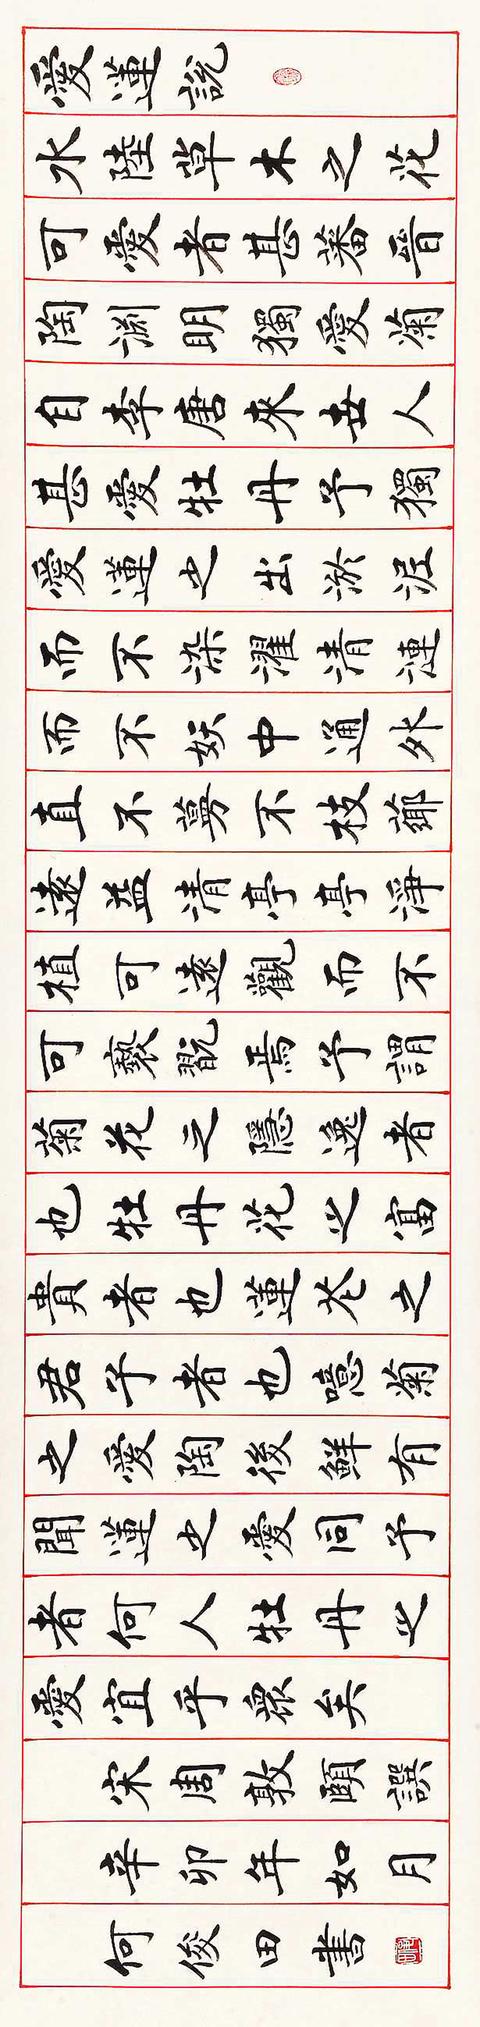 愛蓮說
水陸草木之花
可愛者甚蕃晉
陶淵明獨愛菊
自李唐來世人
甚愛牡丹予獨
愛蓮之出淤泥
而不染濯清漣
而不妖中通外
直不蔓不枝薌
遠益清亭亭淨
植可遠觀而不
可褻翫焉予謂
菊花之隱逸者
也牡丹花之富
貴者也蓮花之
君子者也噫菊
之愛陶後鮮有
聞蓮之愛同予
者何人牡丹之
愛宜乎眾矣
宋周敦頤譔
辛卯年如月
何俊田書